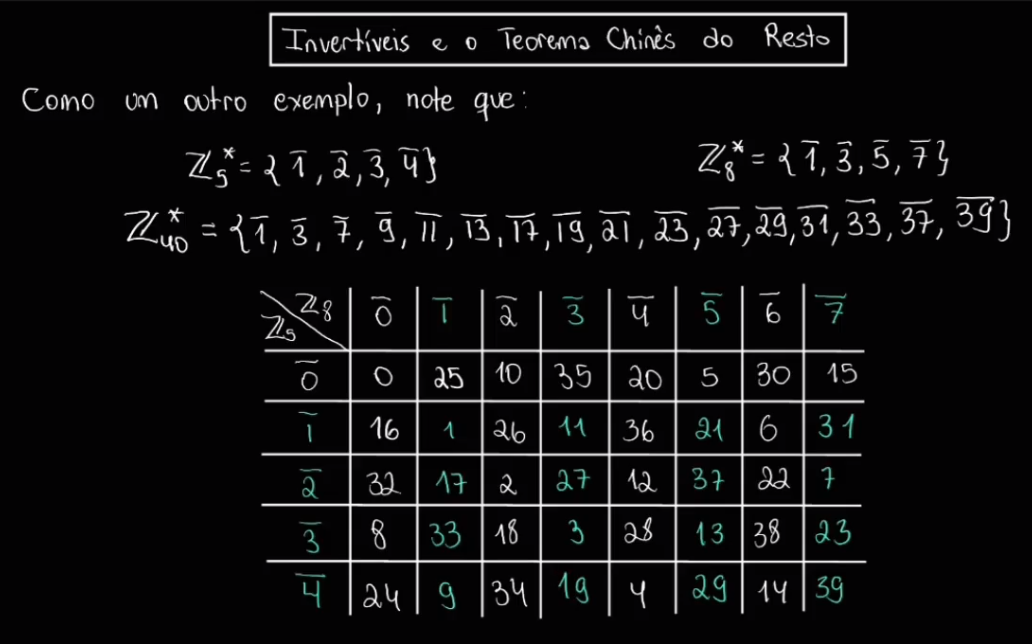 Invertíveis e o Teorema Chinês do Resto
Como um outro exemplo, note que:
ℤ₅* = {1̅, 2̅, 3̅, 4̅} ℤ₈* = {1̅, 3̅, 5̅, 7̅}
ℤ₄₀* = {1̅, 3̅, 7̅, 9̅, 1̅1̅, 1̅3̅, 1̅7̅, 1̅9̅, 2̅1̅, 2̅3̅, 2̅7̅, 2̅9̅, 3̅1̅, 3̅3̅, 3̅7̅, 3̅9̅}
ℤ₅ ℤ₈ 0̅ 1̅ 2̅ 3̅ 4̅ 5̅ 6̅ 7̅
0̅ 0 25 10 35 20 5 30 15
1̅ 16 1 26 11 36 21 6 31
2̅ 32 17 2 27 12 37 22 7
3̅ 8 33 18 3 28 13 38 23
4̅ 24 9 34 19 4 29 14 39